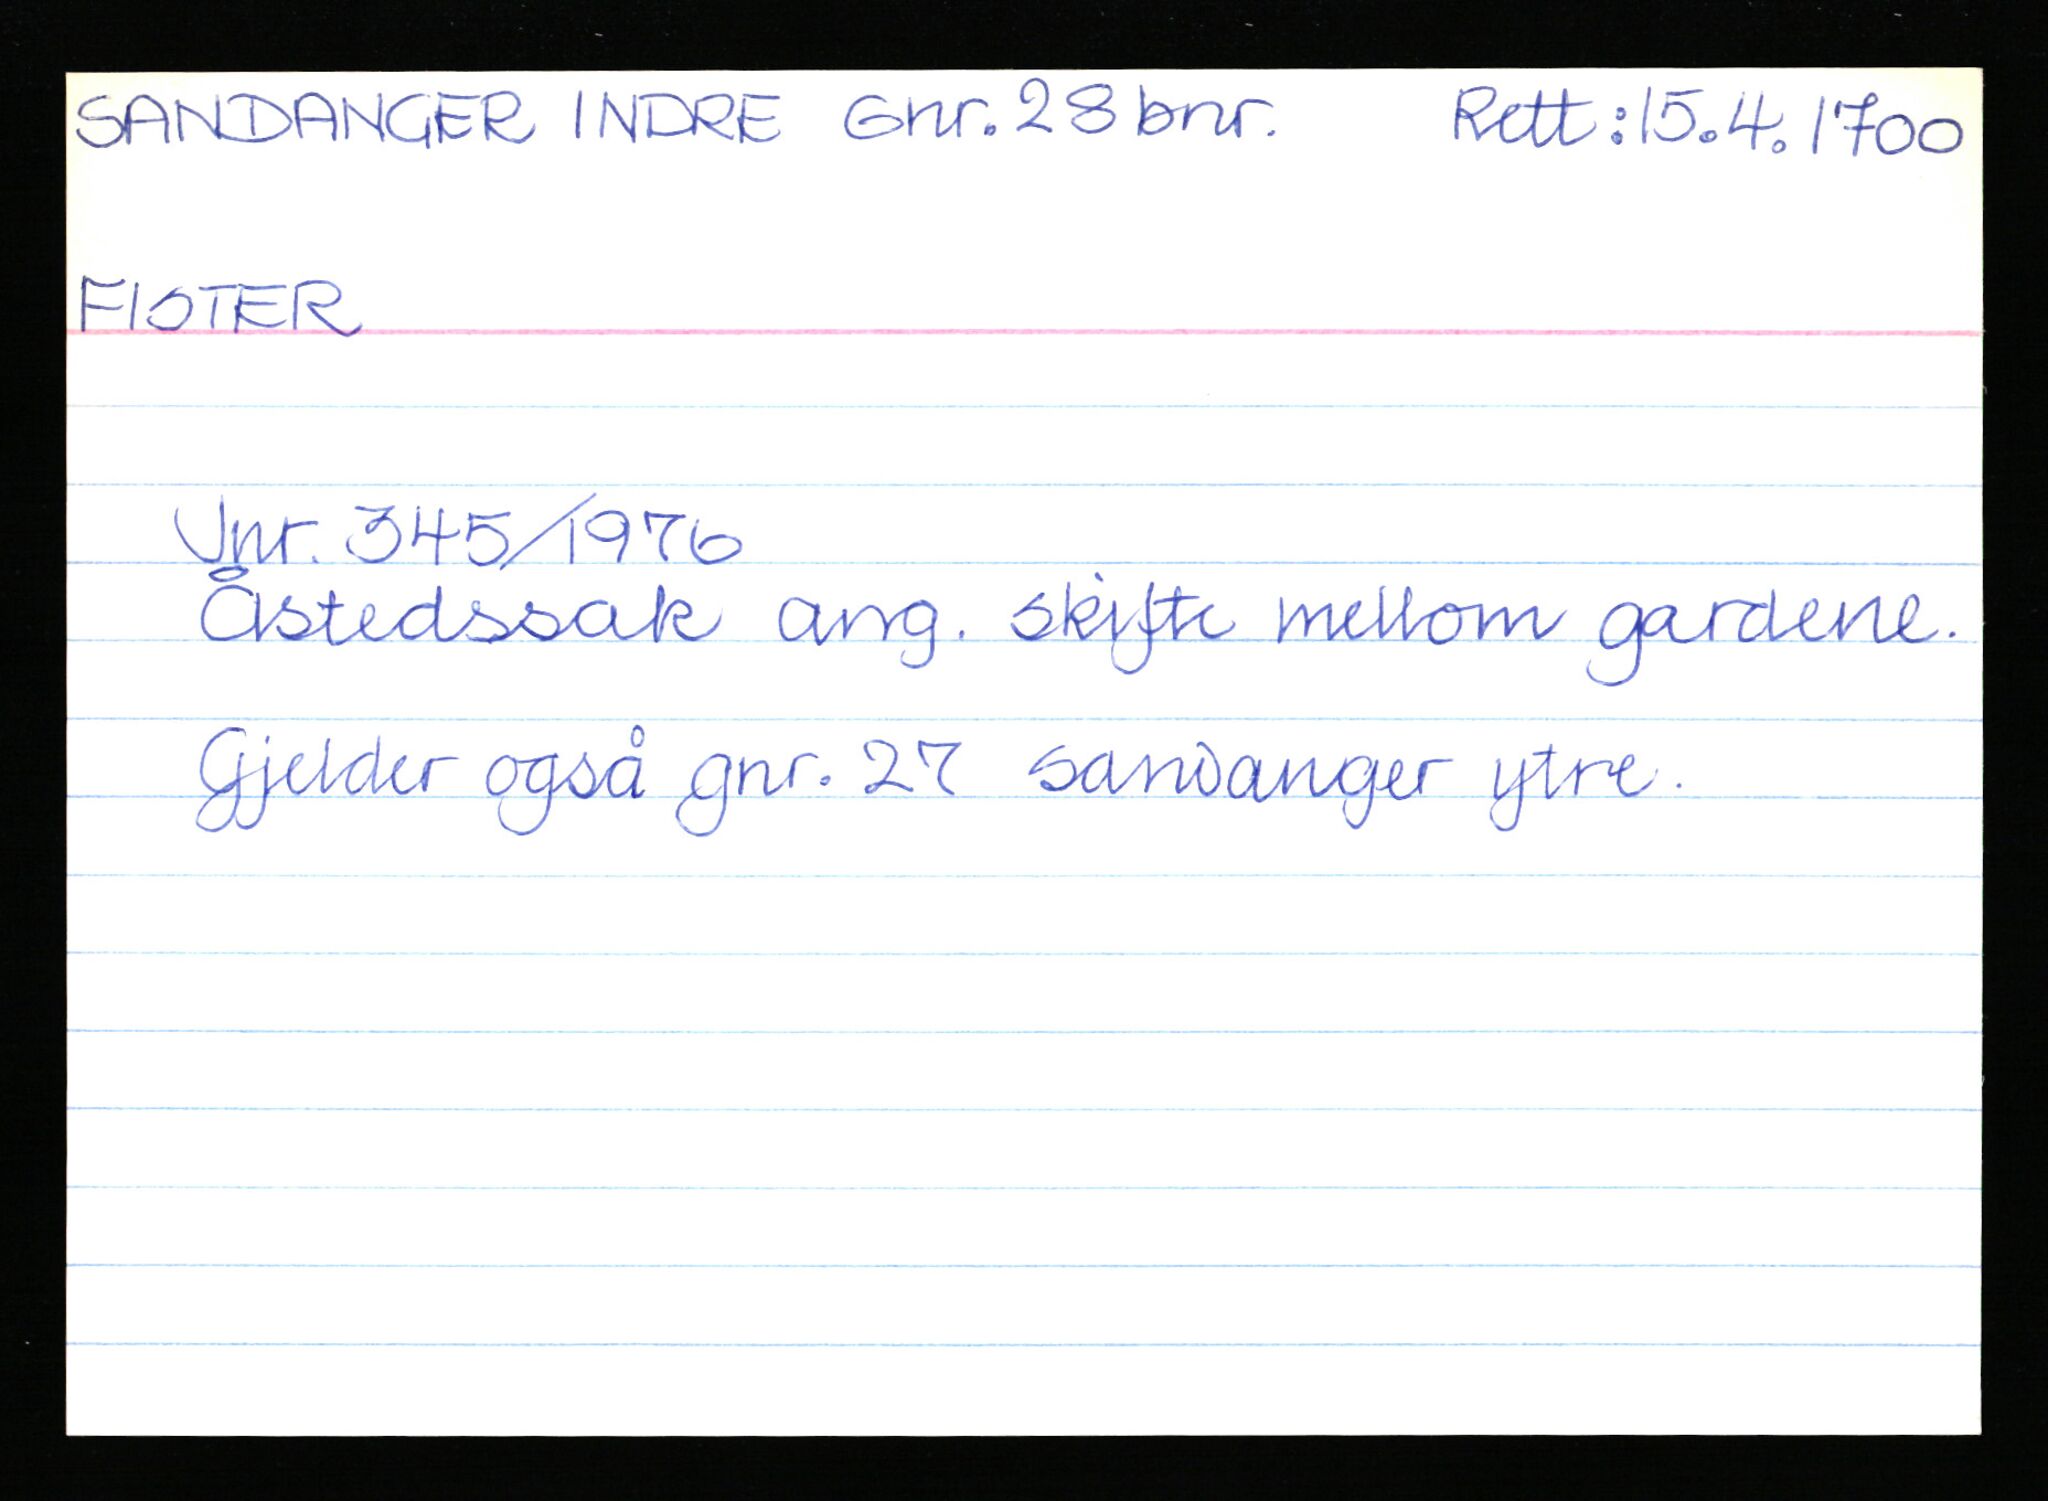 SANDANGER INDRE Gnr. 28 bnr. Rett: 15.4.1700
FISTER
Jnr. 345/1976
Åstedssak ang. skifte mellom gardene.
Gjelder også gnr. 27 Sandanger ytre.